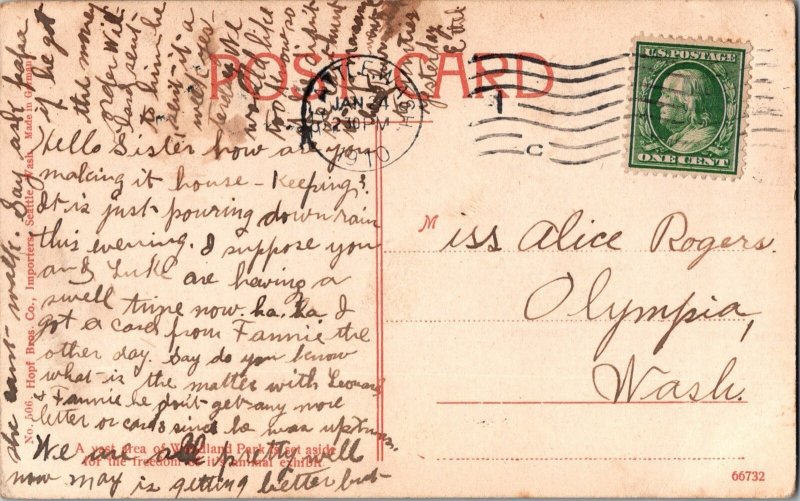 POST CARD
SEATTLE, WASH.
JAN 24
2 30 PM
1910
1
C
U.S. POSTAGE
ONE CENT
Hello Sister how are you
making it house-keeping?
It is just pouring down rain
this evening. I suppose you
and Luke are having a
swell time now. ha. ha I
got a card from Fannie the
other day. Say do you know
what is the matter with Leonard
& Fannie he don't get any more
letter or cards since he was up
We are all pretty well
now may is getting better but
she cant walk. Say ask papa
if he got
the money
order Will
last sent
to him he
sent it a
week
We
would like
to
Miss Alice Rogers.
Olympia,
Wash.
No. 506. Hopf Bros. Co., Importers, Seattle, Wash. Made in Germany
A vast area of Woodland Park is set aside
for the freedom of it's animal exhibit
66732